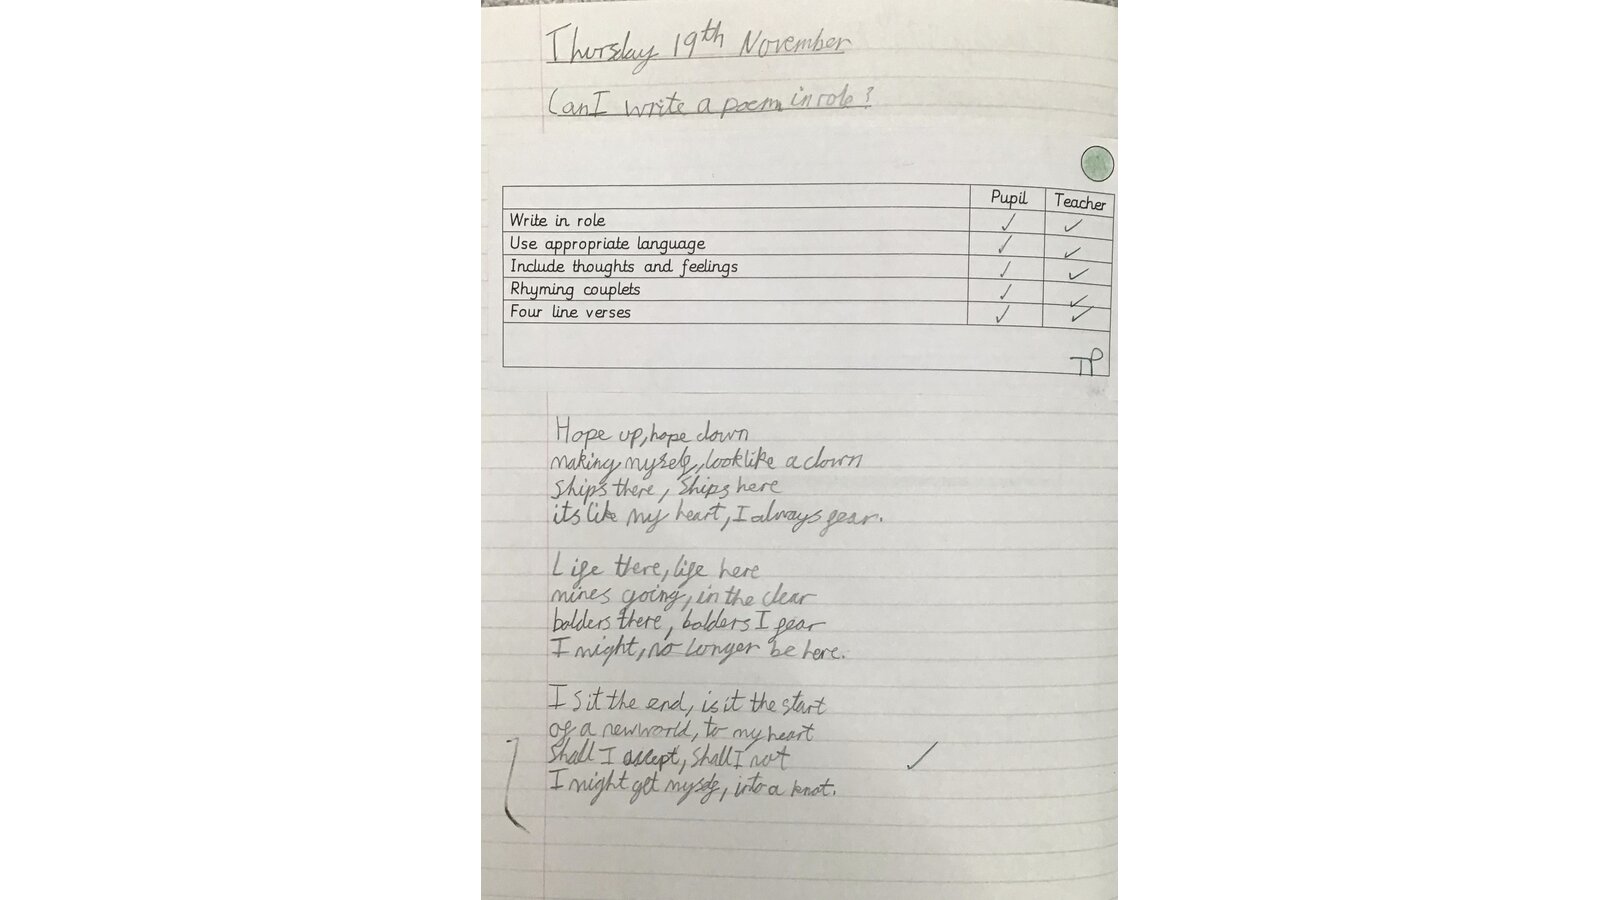 Thursday 19th November
Can I write a poem in role?
Pupil Teacher
Write in role ✓ ✓
Use appropriate language ✓ ✓
Include thoughts and feelings ✓ ✓
Rhyming couplets ✓ ✓
Four line verses ✓ ✓
TP
Hope up, hope down
making myself, look like a clown
ships there, ships here
its like my heart, I always fear.
Life there, life here
mines going, in the clear
bolders there, bolders I fear
I might, no longer be here.
I sit the end, is it the start
of a new world, to my heart
Shall I accept, shall I not
I might get myself, into a knot.